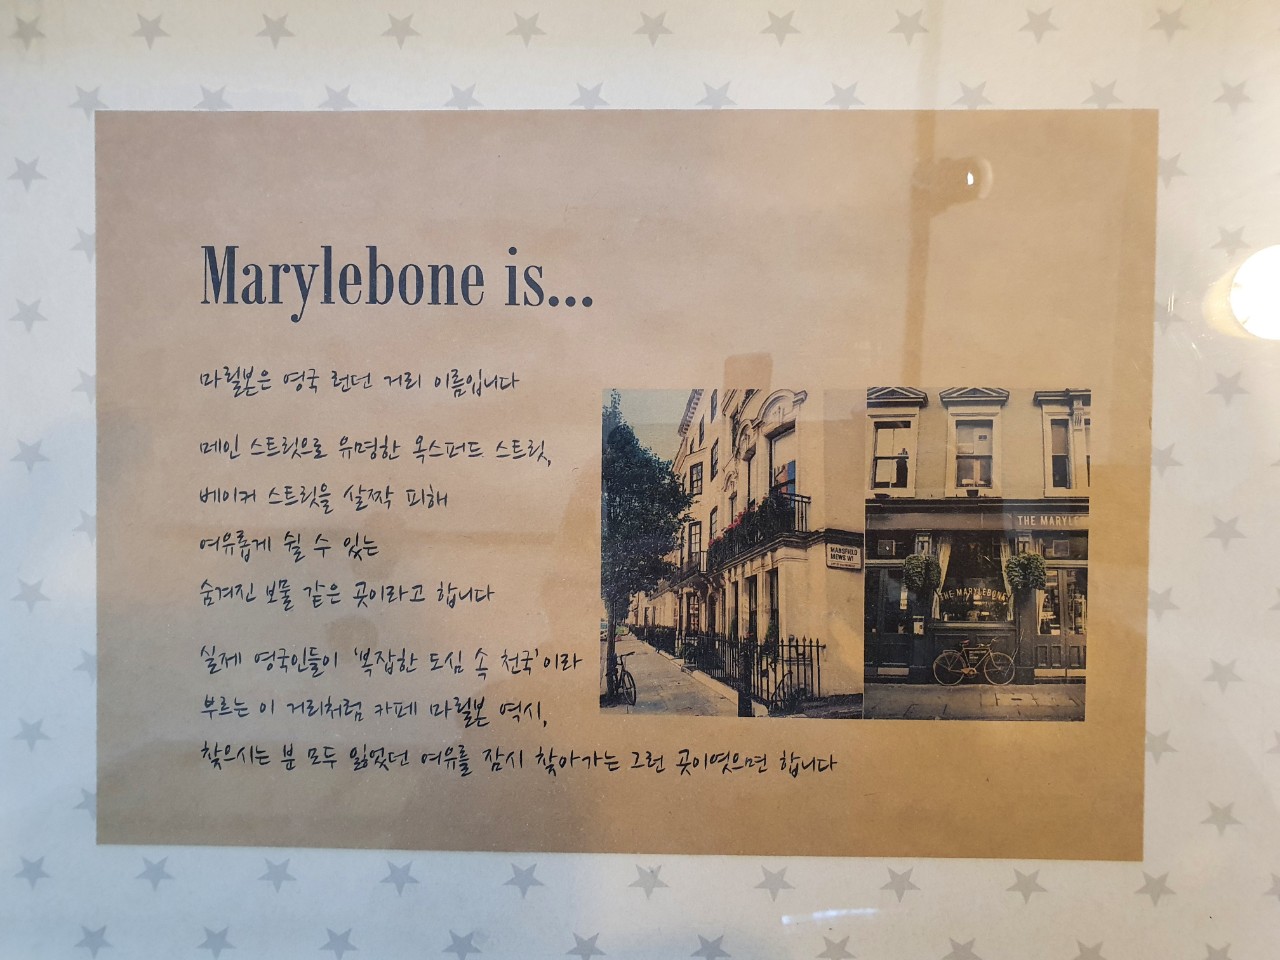 Marylebone is...
마릴본은 영국 런던 거리 이름입니다
메인 스트릿으로 유명한 옥스퍼드 스트릿,
베이커 스트릿을 살짝 피해
여유롭게 쉴 수 있는
숨겨진 보물 같은 곳이라고 합니다
실제 영국인들이 '복잡한 도심 속 천국'이라
부르는 이 거리처럼 카페 마릴본 역시,
찾으시는 분 모두 잃었던 여유를 잠시 찾아가는 그런 곳이였으면 합니다
MANSFIELD
MEWS W1
THE MARYLE
THE MARYLEBONE